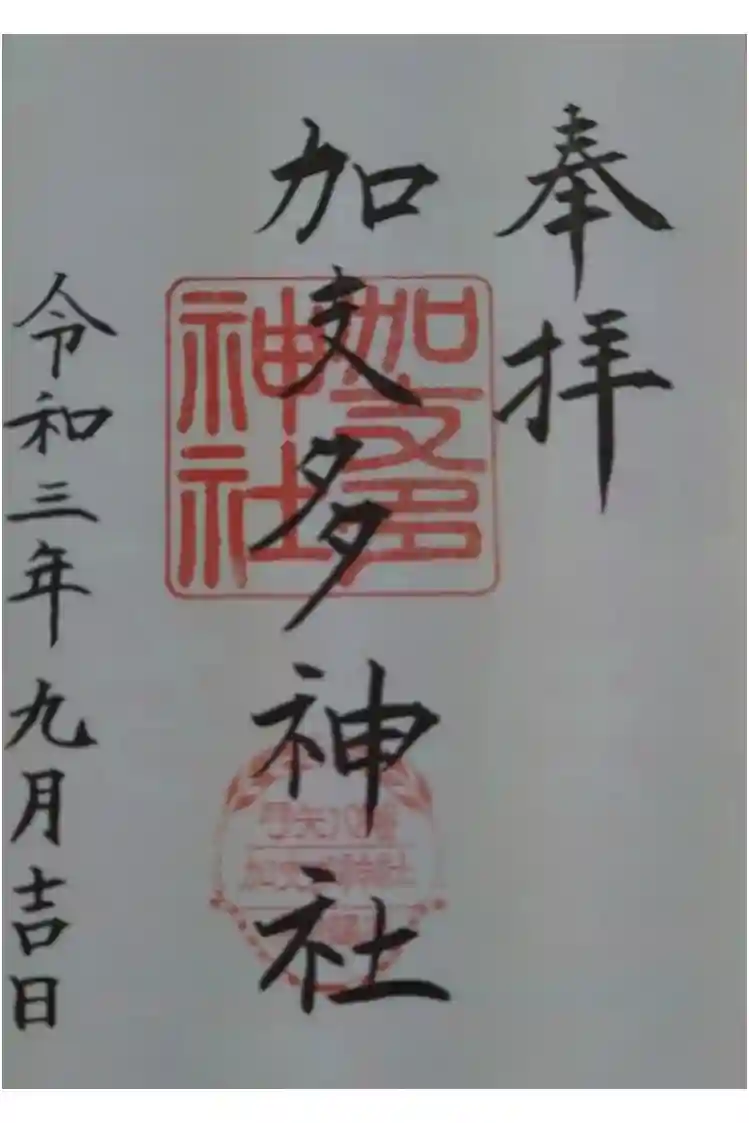 奉拝
加支多神社
加支多
神社
令和三年九月吉日